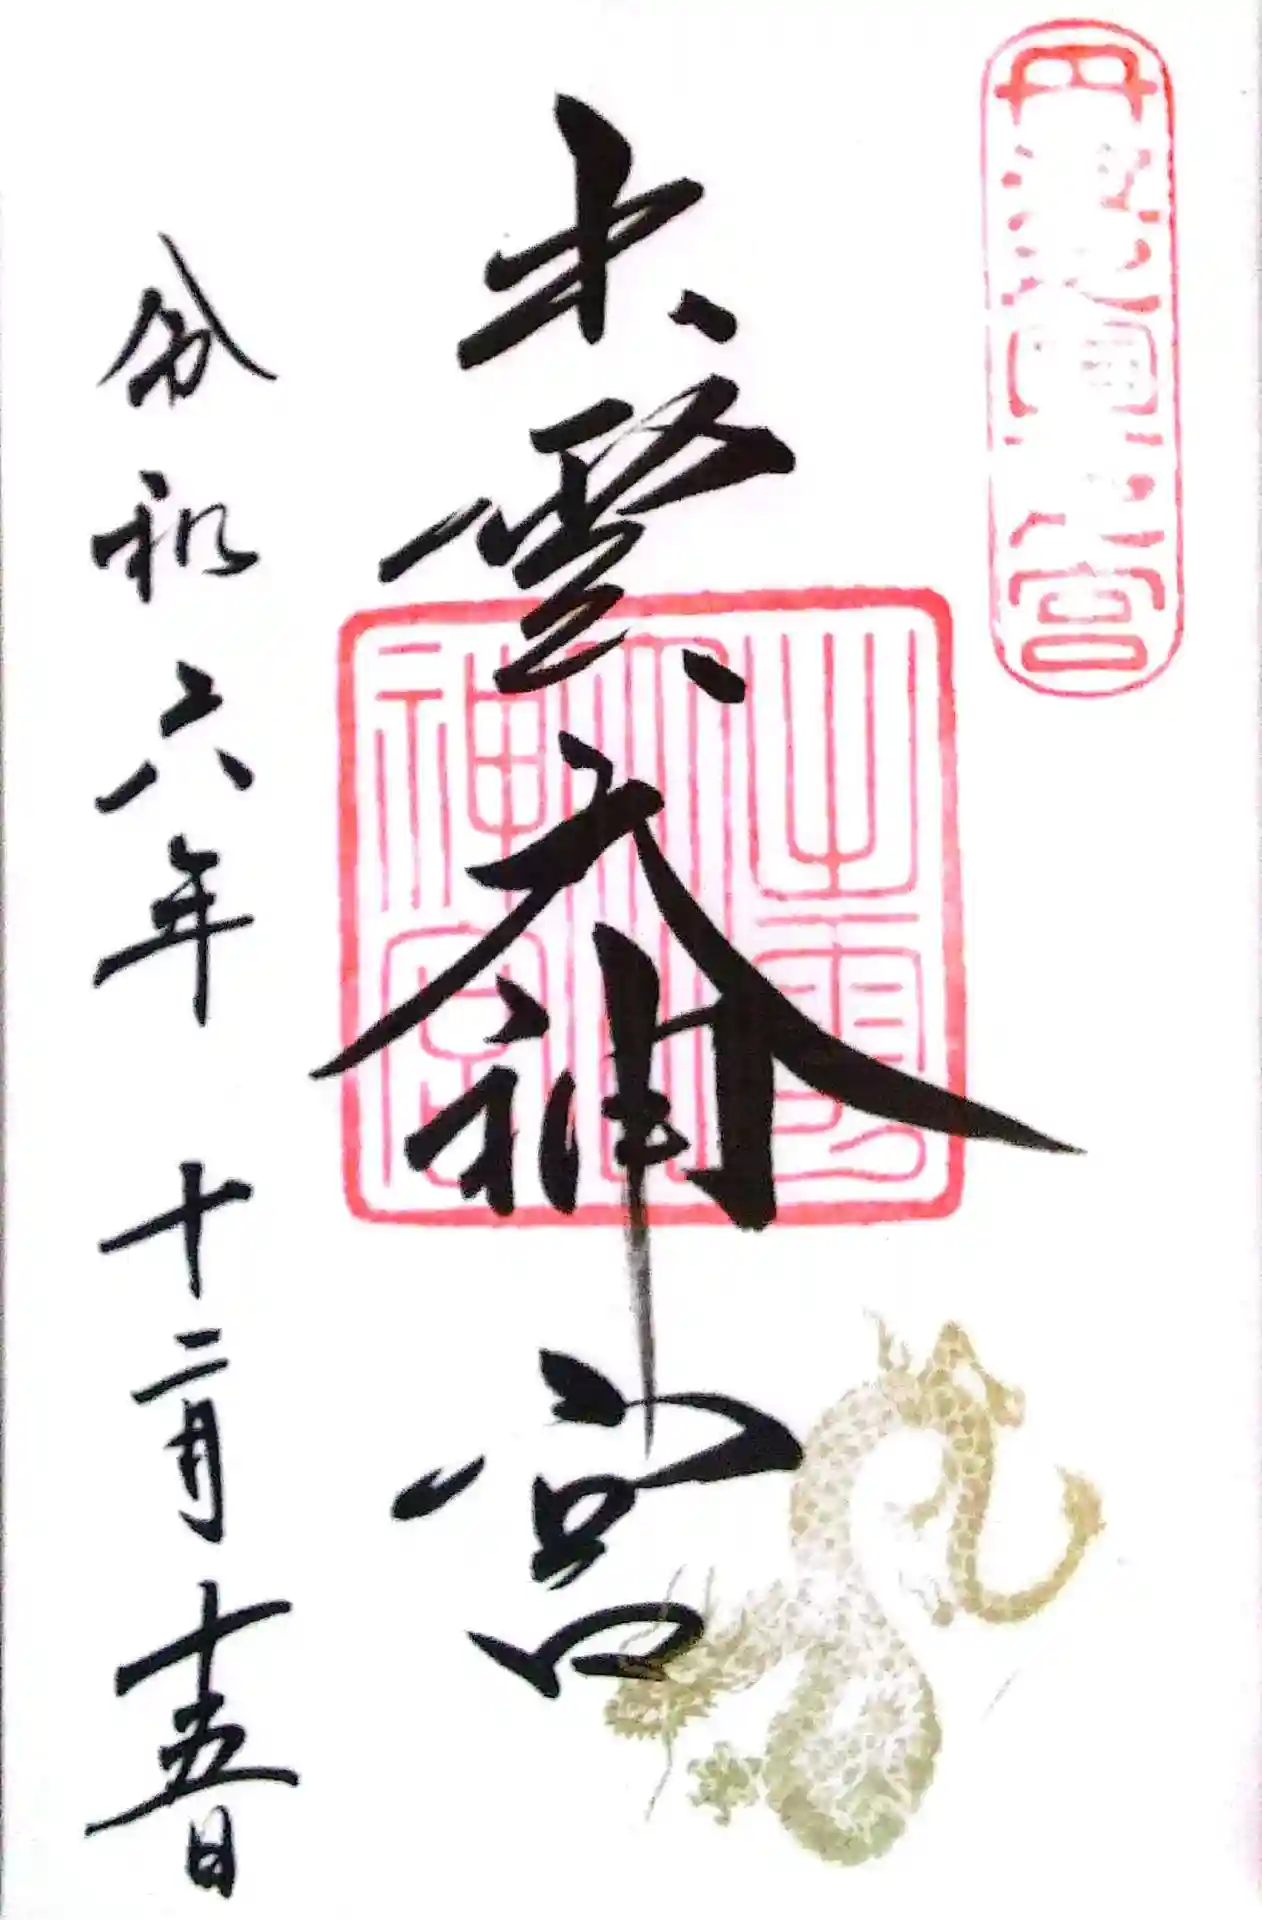 丹波國一之宮
出雲大神宮
出雲大神宮
令和六年 十二月十五日